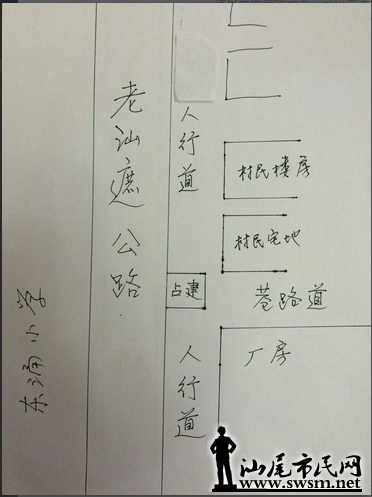 老汕遮公路
人行道
村民楼房
村民宅地
占建
巷路道
厂房
人行道
东涌小学
汕尾市民网
www.swsm.net